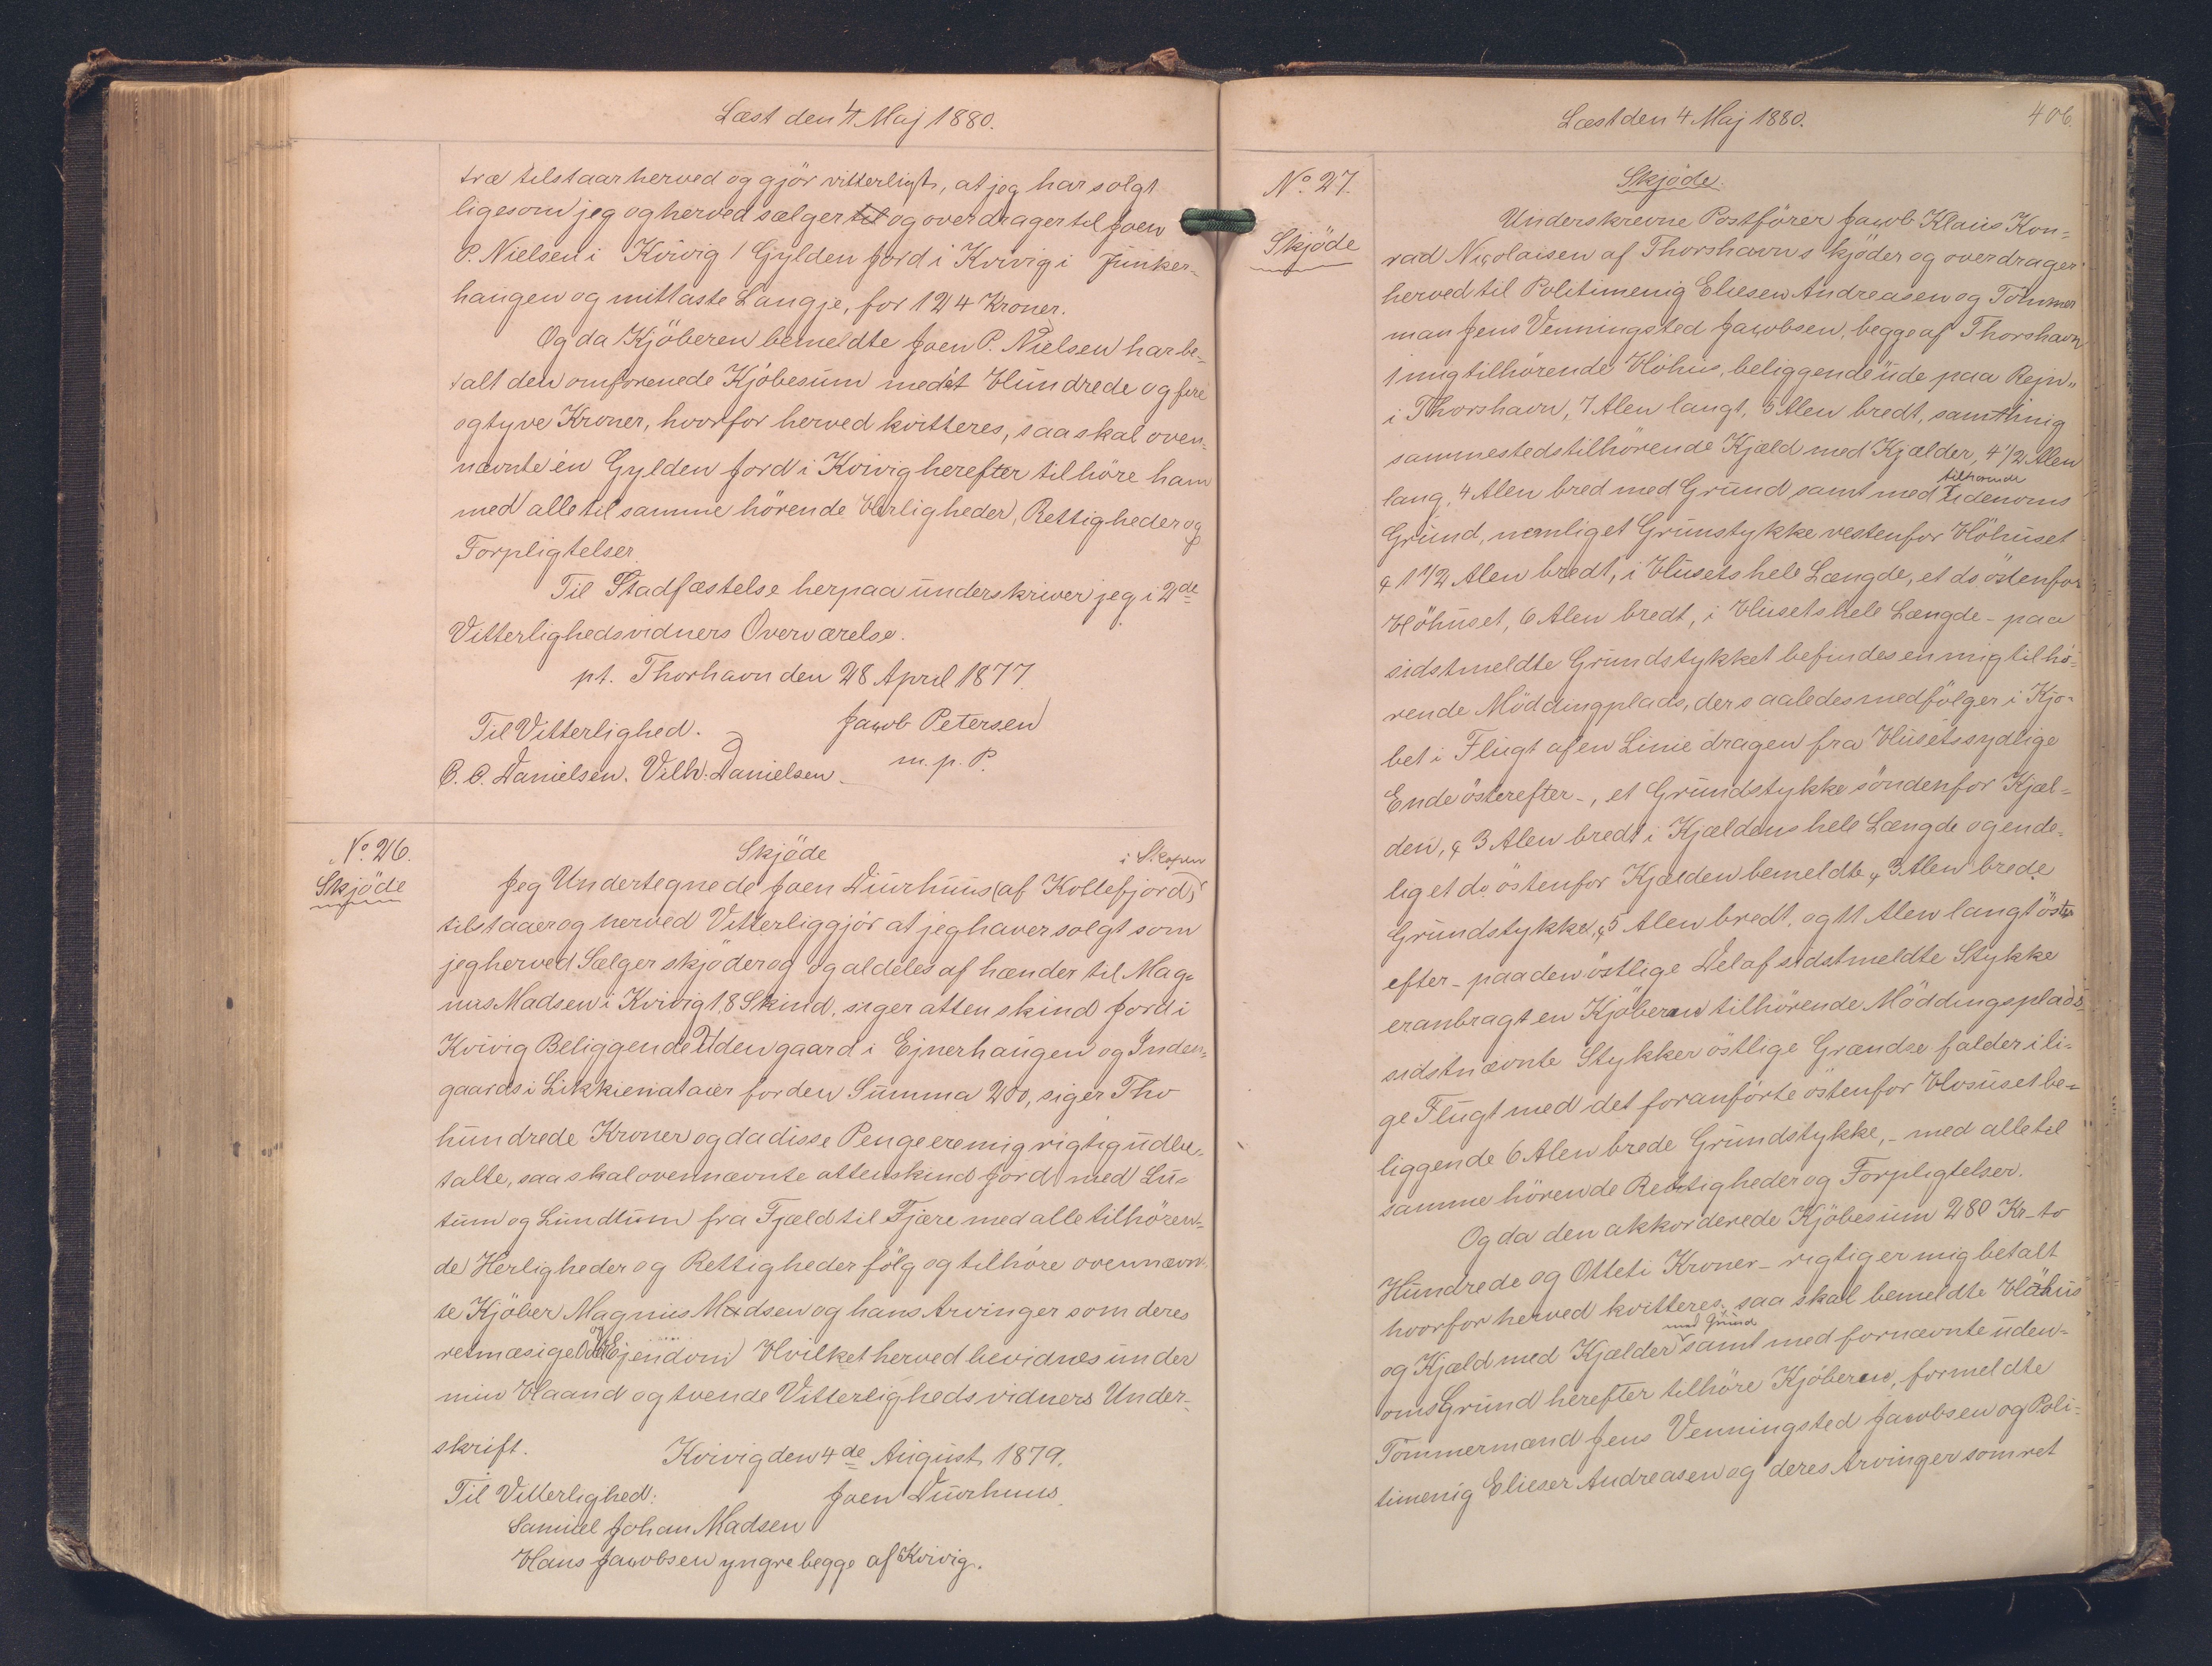 Læst den 4 Maj 1880.
træ tilstaar herved og gjör vitterligt, at jeg har solgt
ligesom jeg og herved sælger til og overdrager til Joen
P. Nielsen i Kvivig 1 Gylden Jord i Kvivig i Junker-
haugen og mittaste Langje, for 124 Kroner.
Og da Kjöberen bemeldte Joen P. Nielsen har be-
talt den omforenede Kjöbesum med ét Hundrede og fire
ogtyve Kroner, hvorfor herved kvitteres, saa skal oven-
nævnte én Gylden Jord i Kvivig herefter tilhöre ham
med alle til samme hörende Herligheder, Rettigheder og
Forpligtelser.
Til Stadfæstelse herpaa underskriver jeg i 2de
Vitterlighedsvidners Overværelse.
pt. Thorhavn den 28 April 1877.
Til Vitterlighed. Jacob Petersen
C. C. Danielsen. Vilh: Danielsen. m. p. P.
No. 26. Skjöde
Skjöde i Skopen
Jeg Undertegnede Joen Duurhuus (af Kollefjord)
tilstaaer og herved Vitterliggjör at jeg haver solgt som
jeg herved Sælger skjöder og og aldeles af hænder til Mag-
nus Madsen i Kvivig 18 Skind, siger atten skind Jord i
Kvivig Beliggende Uden gaard i Ejnerhaugen og Inden-
gaards i Likkienataier for den Summa 200, siger Tho
hundrede Kroner og da disse Penge ere mig rigtig udbe-
talte, saa skal ovennævnte atten skind Jord med Lu-
tum og Lundtum fra Fjæld til Fjære med alle tilhören-
de Herligheder og Rettigheder fölg og tilhöre ovennævn-
te Kjöber Magnus Madsen og hans Arvinger som deres
retmæsige Odel og Ejendom Hvilket herved bevidnes under
min Haand og tvende Vitterligheds vidners Under-
skrift. Kvivig den 4de August 1879.
Til Vitterlighed: Joen Duurhuus.
Samuel Johan Madsen
Hans Jacobsen yngre begge af Kvivig.
Læst den 4 Maj 1880. 406.
No. 27. Skjöde.
Skjöde
Underskrevne Postförer Jacob Klaus Kon-
rad Nicolaisen af Thorshavn skjöder og overdrager
herved til Politimenig Eliesen Andreasen og Tömmer
man Jens Venningsted Jacobsen, begge af Thorshavn
1 mig tilhörende Höhus, beliggende ude paa Rejn"
i Thorshavn, 7 Alen langt, 5 Alen bredt, samt 1 mig
sammesteds tilhörende Kjæld med Kjælder, 4 1/2 Alen
tilhörende
lang, 4 Alen bred med Grund samt med udenoms
Grund, nemlig et Grunstykke vestenfor Höhuset
ç 1 1/2 Alen bredt, i Husets hele Længde, et do östenfor
Höhuset, 6 Alen bredt, i Husets hele Længde - paa
sidstmeldte Grundstykket befindes en mig tilhö-
rende Möddingplads, der saaledes medfölger i Kjö-
bet i Flugt af en Linie dragen fra Husets sydlige
Ende österefter -, et Grundstykke söndenfor Kjæl-
den, ç 3 Alen bredt i Kjældens hele Længde og ende-
lig et do östenfor Kjælden bemeldte ç 3 Alen brede
Grundstykke, ç 5 Alen bredt, og 11 Alen langt öster
efter - paa den östlige Del af sidstmeldte Stykke
er anbragt en Kjöberne tilhörende Möddingsplads
sidstnævnte Stykker östlige Grændse falder i li-
ge Flugt med det foranförte östenfor Hosuset be-
liggende 6 Alen brede Grundstykke, - med alle til
samme hörende Rettigheder og Forpligtelser.
Og da den akkorderede Kjöbesum 280 Kr - to
Hundrede og Otteti Kroner - rigtig er mig betalt
hvorfor herved kvitteres, saa skal bemeldte Höhus
med Grund
og Kjæld med Kjælder samt med fornævnte uden-
oms Grund herefter tilhöre Kjöberne, formeldte
Tömmermænd Jens Venningsted Jacobsen og Poli-
timenig Elieser Andreasen og deres Arvinger som ret